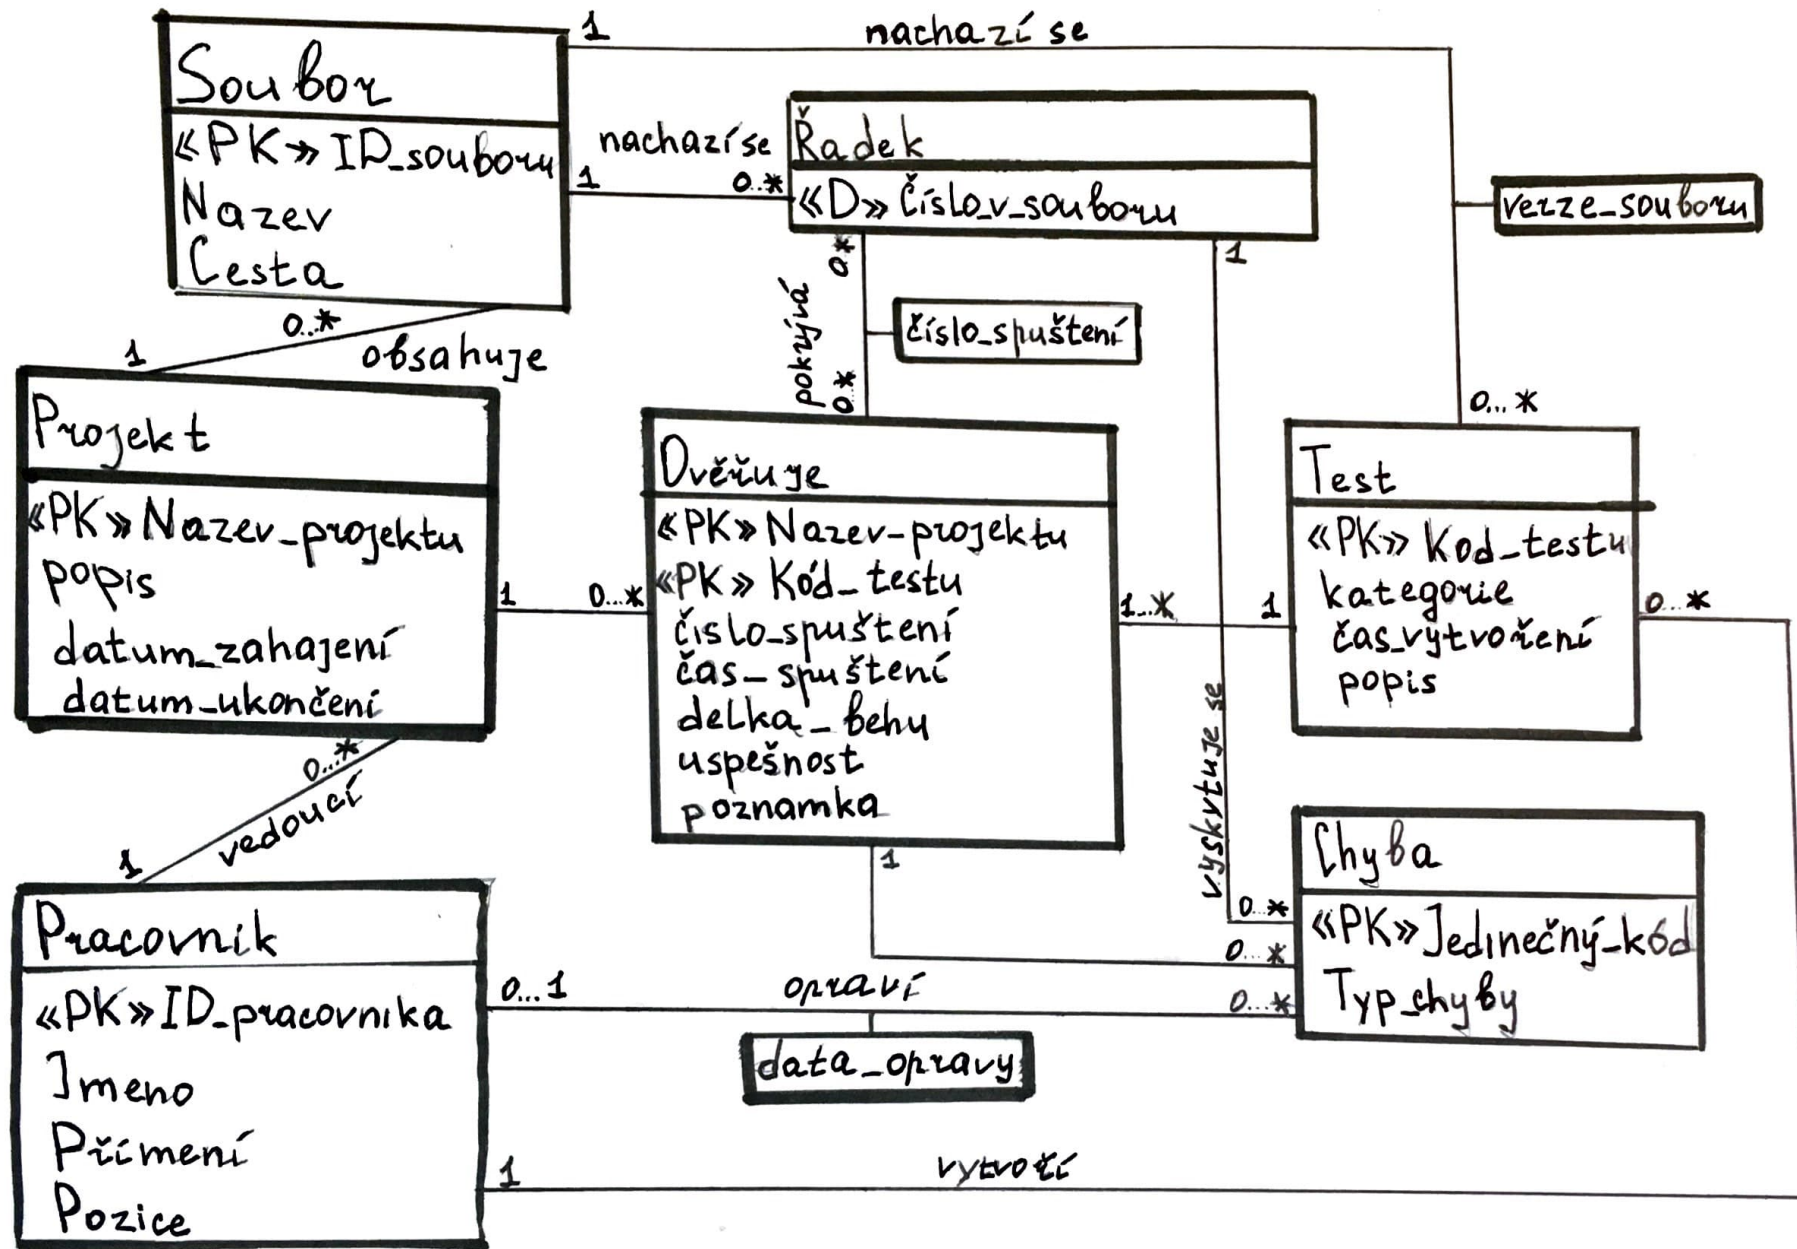 1
nachazí se
Soubor
«PK» ID_souboru
Nazev
Cesta
nachazí se
1
0..*
Řadek
«D» Číslo_v_souboru
verze_souboru
0..*
1
pokrývá
číslo_spuštení
0..*
0...*
0..*
1
obsahuje
Projekt
«PK» Nazev_projektu
popis
datum_zahajení
datum_ukončení
1
0...*
Ověřuje
«PK» Nazev-projektu
«PK» Kód_testu
číslo_spuštení
čas_spuštení
delka_behu
uspešnost
poznamka
1...*
1
Test
«PK» Kod_testu
kategorie
čas_vytvoření
popis
0...*
0...*
vedoucí
1
vyskytuje se
1
0...*
0...*
Chyba
«PK» Jedinečný_kód
Typ_chyby
Pracovnik
«PK» ID_pracovnika
Jmeno
Přímení
Pozice
0...1
opraví
0...*
data_opravy
1
vytvoří